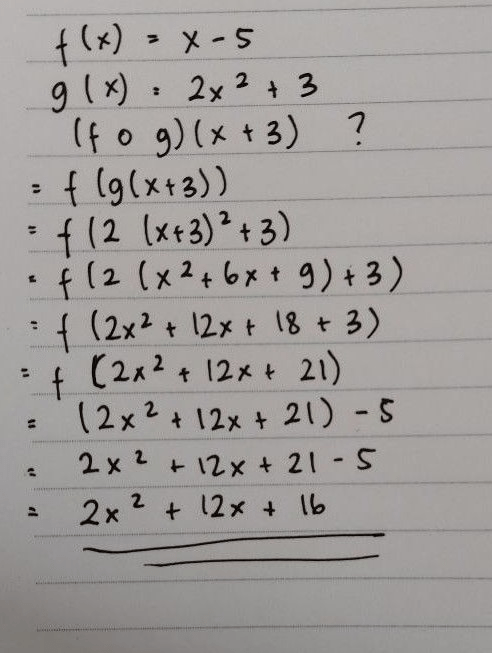 f(x) = x - 5
g(x) = 2x² + 3
(f o g)(x + 3) ?
= f(g(x+3))
= f(2 (x+3)² + 3)
= f(2 (x² + 6x + 9) + 3)
= f(2x² + 12x + 18 + 3)
= f(2x² + 12x + 21)
= (2x² + 12x + 21) - 5
= 2x² + 12x + 21 - 5
= 2x² + 12x + 16